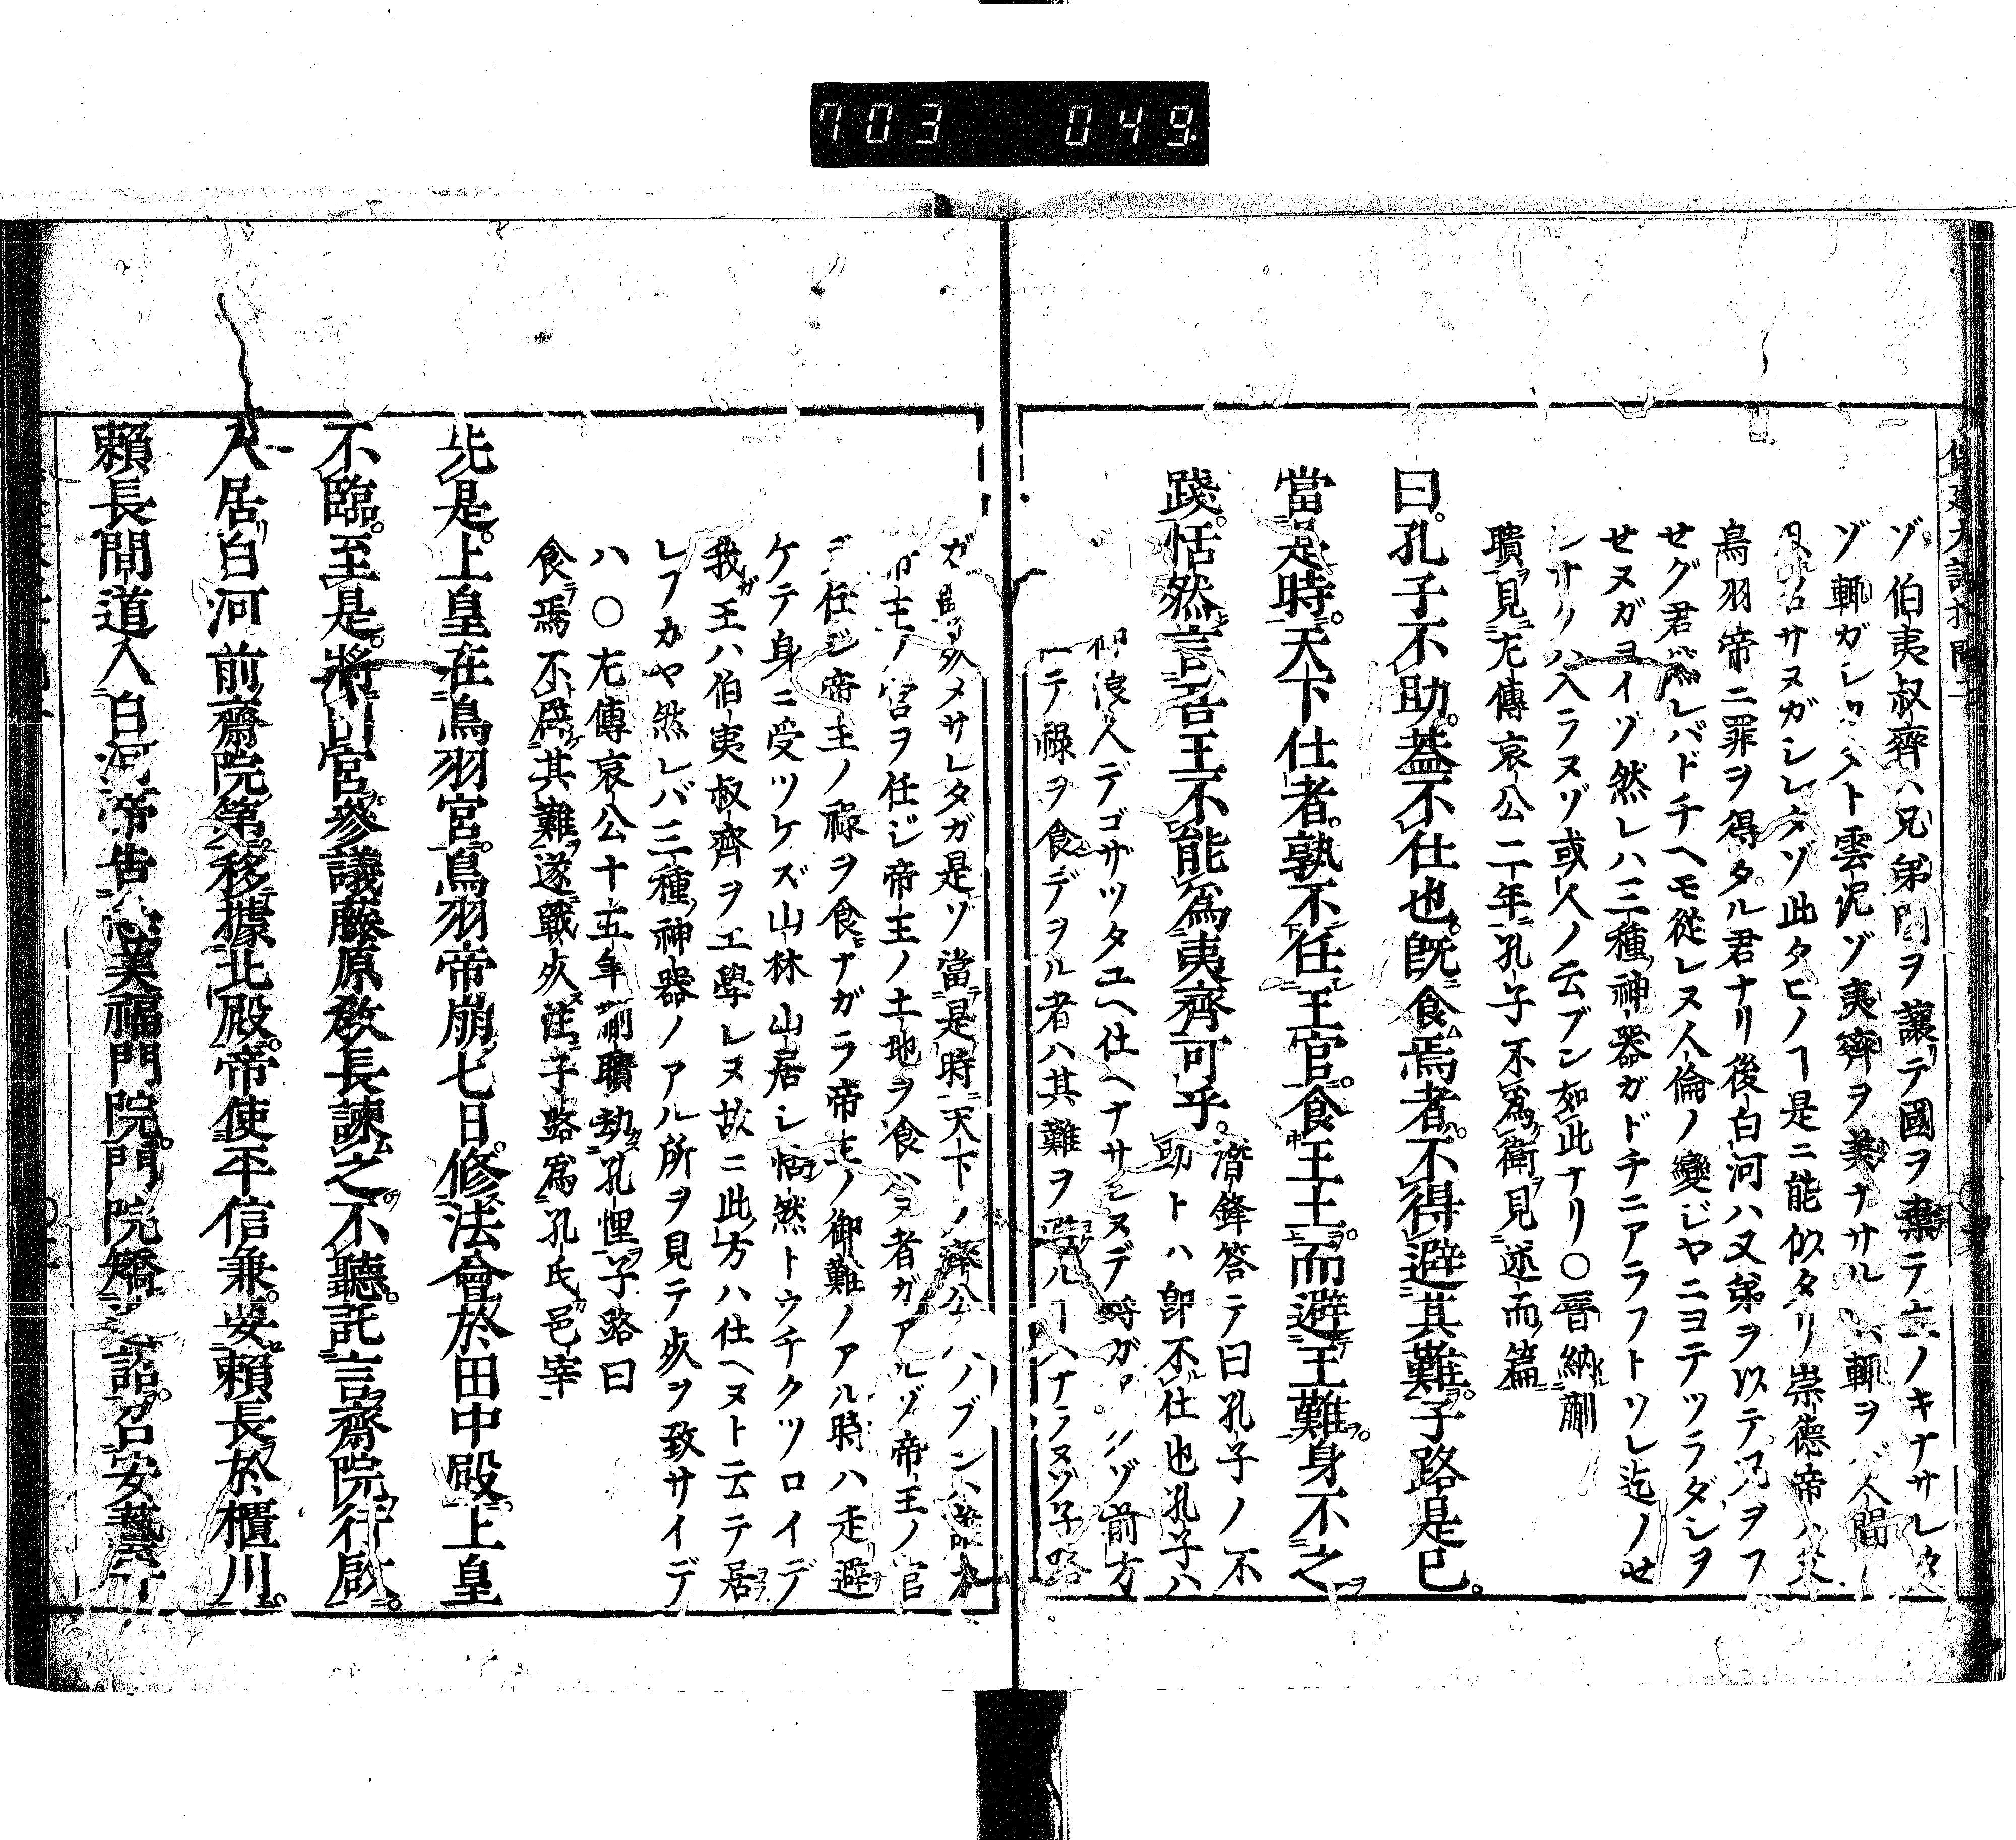 703 049
ゾ伯夷叔齊ハ兄弟間ヲ讓テ國ヲ棄テ立ノキナサレタ
ゾ輒ガシカタト雲泥ゾ夷齊ヲ美ナサルハ輒ヲバ人間
召サヌガシレタゾ此タヒノヿ是ニ能似タリ崇德帝ハ父
鳥羽帝ニ罪ヲ得タル君ナリ後白河ハ又弟ヲ以テ兄ヲフ
せグ君ナレバドチヘモ從レヌ人倫ノ變じヤニヨテツラダシヲ
せヌガヨイゾ然レハ三種神器ガドチニアラフトソレ迄ノせ
ハ入ラヌゾ或人ノ云ブン如此ナリ〇晉納蒯
聵見左傳哀公二年孔子不爲衛見述而篇
曰孔子不助蓋不仕也既食焉者不得避其難子路是已
當是時天下仕者孰不任王官食王土而避王難身不之
踐恬然言吾王不能爲夷齊可乎
潛鋒答テ曰孔子ノ不
助トハ卽不仕也孔子ハ
浪人デゴザツタユヘ仕ヘナサレヌデ ゾ前方
ニテ祿ヲ食デヲル者ハ其難ヲ避ルヿハナラヌゾ子路
ガ サレタガ是ゾ當是時天下ノ
帝王ノ官ヲ任じ帝王ノ土地ヲ食ハヌ者ガアルゾ帝王ノ官
デ任ジ帝王ノ祿ヲ食ナガラ帝王ノ御難ノアル時ハ走避
ケテ身ニ受ツケズ山林山居シ恬然トウチクツロイデ
我王ハ伯夷叔齊ヲエ學レヌ故ニ此方ハ仕ヘヌト云テ居
レフカヤ然レバ三種神器ノアル所ヲ見テ死ヲ致サイデ
ハ〇左傳哀公十五年蒯聵劫孔悝子路曰
食焉不辟其難遂戰死注子路爲孔氏邑宰
先是上皇在鳥羽宮鳥羽帝崩七日修法會於田中殿上皇
不臨至是將出宮參議藤原敎長諫之不聽託言齋院行啟
入居白河前齋院第移據北殿帝使平信兼要賴長於櫃川
賴長間道入白河帝告急美福門院門院矯遺詔召安藝守